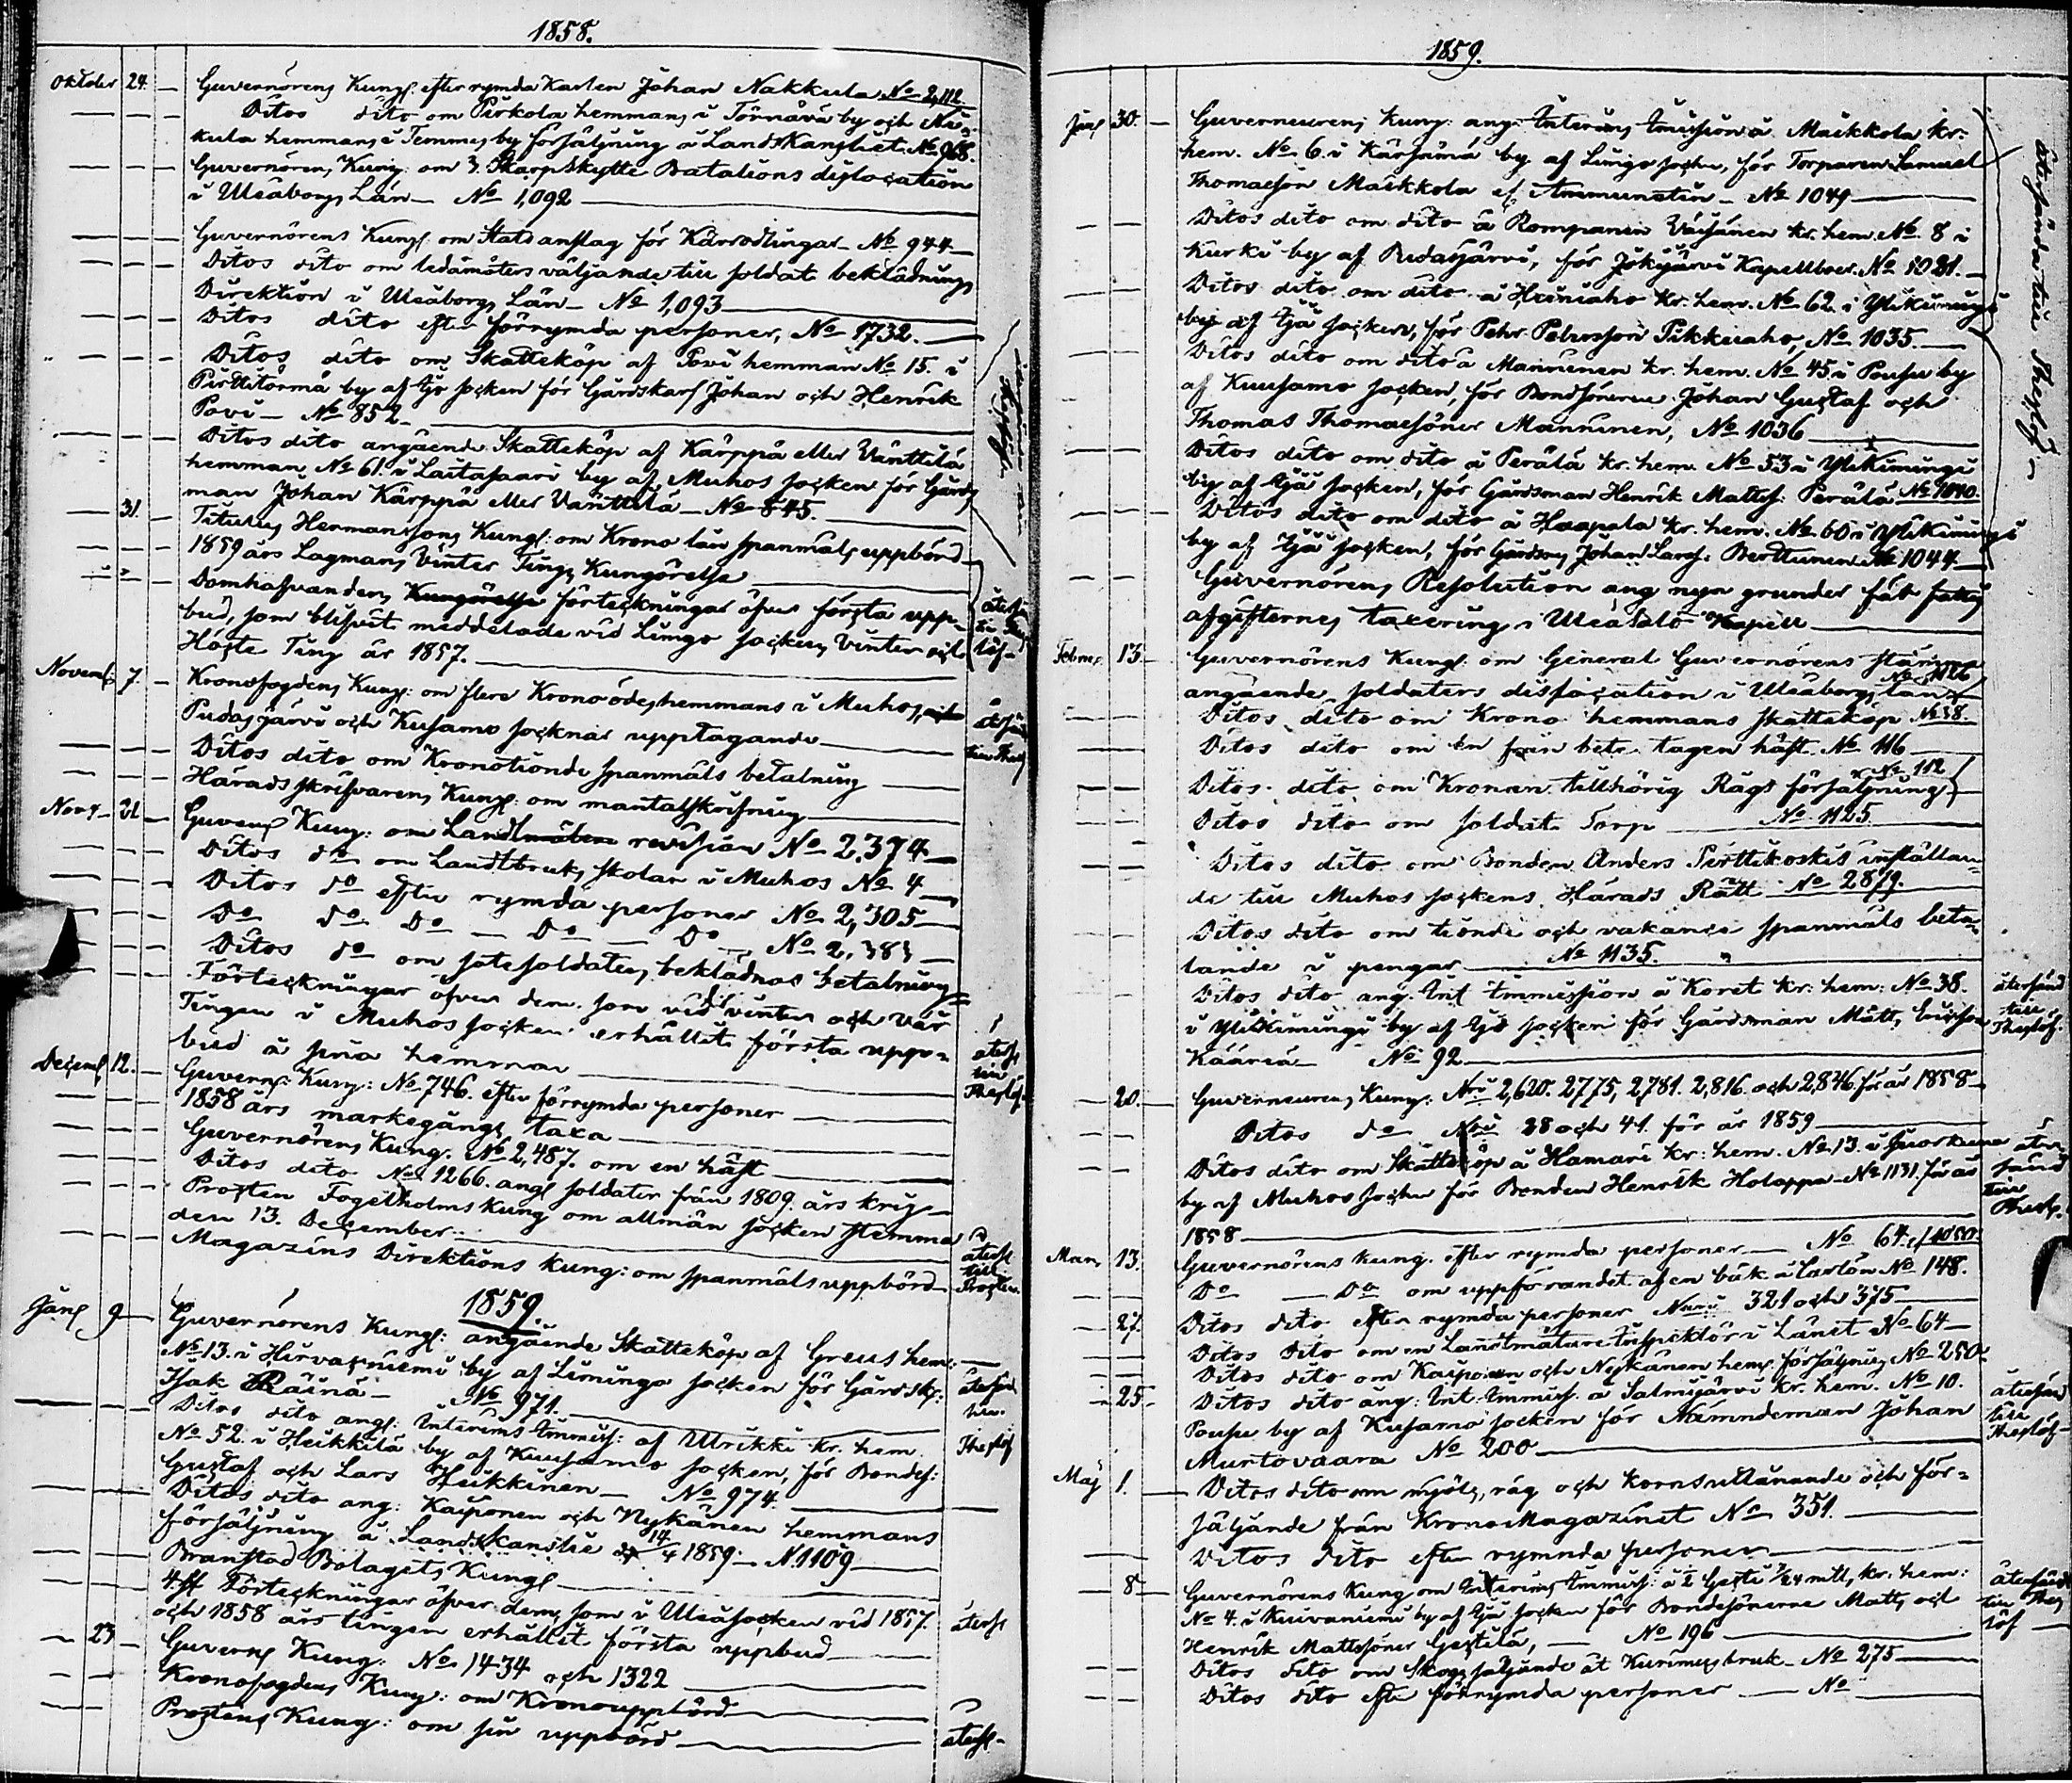 1858.
Oktober 24. Guvernörens Kungl. efter rymda Karlen Johan Nakkula No 2,112.
Ditos dito om Pirkola hemmans i Törnävä by och
kula hemmans i Temmes by försäljning å LandsKansliet. No 968.
Guvernörens Kung: om 3. Skarpskytte Batalions dislocation
i Uleåborgs Län No 1,092
Guvernörens Kungl om Statsanslag för Kärrodlingar No 944
Ditos dito om ledamöters väljande till soldat beklädnings
Direktion i Uleåborgs Län No 1,093
Ditos dito efter förrymda personer, No 1732.
Ditos dito om Skatteköp af Povi hemman No 15. i
Pirttitörmä by af Ijo socken för Gårdskarl Johan och Henrik
Povi No 852
Ditos dito angående Skatteköp af Kärppä eller Vänttilä
hemman No 61. i Laitasaari by af Muhos socken för Gårds
man Johan Kärppä eller Vänttilä No 845.
31. Titulus Hermanssons Kungl: om Krono lån spanmåls uppbörd
1859 års Lagmans Vinter Tings Kungörelse
Domhafvandens Kungörelse förteckningar öfver första upp-
bud, som blifvit meddelade vid Limgo sockens Vinter och
Höste Ting år 1857.
åters
till
löf
Novemb 7. Kronofogdens Kung: om flere Kronoödeshemmans i Muhos,
Pudasjärvi och Kusamo socknar upptagande
Ditos dito om Kronotionde spanmåls betalning
Häradsskrifvarens Kungl: om mantalsskrifning
Nov 21 Guvens Kung: om Landtmäten revision No 2,374
Ditos do om Landtbruks skolan i Muhos No 4
Ditos do efter rymda personer No 2,305
Do do Do Do Do No 2,383
Ditos do om rotesoldaters beklädnas betalning
Förteckningar öfver dem som vid vinter och vår
Tingen i Muhos socken erhållit första upp-
bud å sina hemman
åters
till
Theslöf.
Decemb 12. Guverns: Kung: No 746. efter förrymda personer
1858 års markegångs taxa
Guvernörens Kung. No 2,487. om en häst
Ditos dito No 1266. angl soldater från 1809. års krig
Prosten Fogelholms Kung om allmän socken stemma
den 13. December
Magazins Direktions kung: om spanmåls uppbörd
åters
till
Prosten
1859.
Janl 9 Guvernörens Kungl: angående Skatteköp af Greus hem:
No 13. i Hirvasniemi by af Liminga socken för Gårdsk:
Isak Räinä No 971.
Ditos dito angl: Interims Immiss: af Ulrikki kr. hem
No 52. i Heikkilä by af Kuusamo socken, för Bondes:
Gustaf och Lars Heikkinen No 974.
Ditos dito ang: Kaiponen och Nykänen hemmans
försäljning å Landskanslie d 14/4 1859. N. 1109
Branstad Bolagets Kungl
4. st Förteckningar öfver dem, som i Uleåsocken vid 1857.
och 1858 års tingen erhållit första uppbud
åters
23 Guverns Kung: No 1434 och 1322
Kronofogdens Kung: om Kronouppbörd
Prostens Kung: om sin uppbörd
åters
1859.
Janl 30. Guverneurens Kung: ang. Interims Imission å Maikkola kr:
hem. No 6. i Kärsämä by af Limgo socken, för Torparen Samuel
Thomasson Maikkola ef Ammunstin No 1049
Ditos dito om dito å Rompanen Väisänen kr. hem. No. 8 i
Kurki by af Pudasjärvi, för Jokijärvi Kapellboer. No 1021.
Ditos dito om dito å Heiniaho kr. hem. No 62. i Ylikiimingi
by af Ijå socken, för Pehr Pehrsson Pikkuaho, No 1035.
Ditos dito om dito å Manninen kr. hem. No 45 i Pousu by
af Kuusamo socken, för Bondsönerne Johan Gustaf och
Thomas Thomassöner Manninen, No 1036
Ditos dito om dito å Perälä kr. hem. No 53 i Ylikimingi
by af Ijå socken, för Gårdsman Henrik Mattss: Perälä No 1040.
Ditos dito om dito å Haapala kr. hem. No 60 i Ylikimingi
by af Ijå socken, för Gårdsm Johan Larss: Berttunen No 1044
Guvernörens Resolution ang nya grunder för fattig
afgifternes taxering i Uleåsalo Kapell
återsända till Theslöf
Febru. 13. Guvernörens Kungl. om General Guvernörens
angående soldaters dislocation i Uleåborgs län No 1126
Ditos dito om Krono hemmans skatteköp No 38.
Ditos dito om en från bete tagen häst No 116
Ditos dito om Kronan tillhörig Rågs försäljning No 112
Ditos dito om soldats Torp No 1125
Ditos dito om Bonden Anders Perttikoskis inställan-
de till Muhos sockens Härads Rätt No 2819.
Ditos dito om tionde och vakance spanmåls beta-
lande i pengar No 1135.
Ditos dito ang. Int Immission å Koret kr: hem: No 38.
i Ylikimingi by af Ijo socken för Gårdsman Matts Ericsson
Kääriä No 92
återsänd
till
Theslöf.
20. Guverneurens Kung: Nri 2,620. 2775, 2,781. 2,816 och 2,846. för år 1858
Ditos do Nri 28 och 41. för år 1859
Ditos dito om Skatteköp å Hamari kr: hem. No 13. i
by af Muhos socken för Bonden Henrik Holappa No 1131. för år
1858
Mars 13. Guvernörens kung. efter rymda personer No 64. / 1050.
Do Do om uppförandet af en båk å Carlön No 148.
27. Ditos dito efter rymda personer Numri 321 och 375
Ditos Dito om en Landtmätare Inspektör i Länet No 64
Ditos dito om Kaiponen och Nykänen hems försäljnig No 250.
25. Ditos dito ang: Int. Immiss. å Salmijärvi kr. hem. No 10.
Pousu by af Kusamo socken för Nämndeman Johan
Murtovaara No 200
återsän
till
Theslöf
Maj 1. Ditos dito om mjöls, råg och korns utlånande och för-
säljande från KronoMagazinet No 351.
Ditos dito efter rymnda personer
8 Guvernörens Kung om Interims Immiss: å 1/2 Gesti 7/24 mtl, kr. hem:
No 4. i Kuivaniemi by af Ijå socken för Bondesönerne Matts och
Henrik Mattssöner Gestilä, No 196
Ditos dito om Skogs säljande åt Kurimus bruk No 275
Ditos dito efter förrymda personer No
återsänd
till Thes
löf